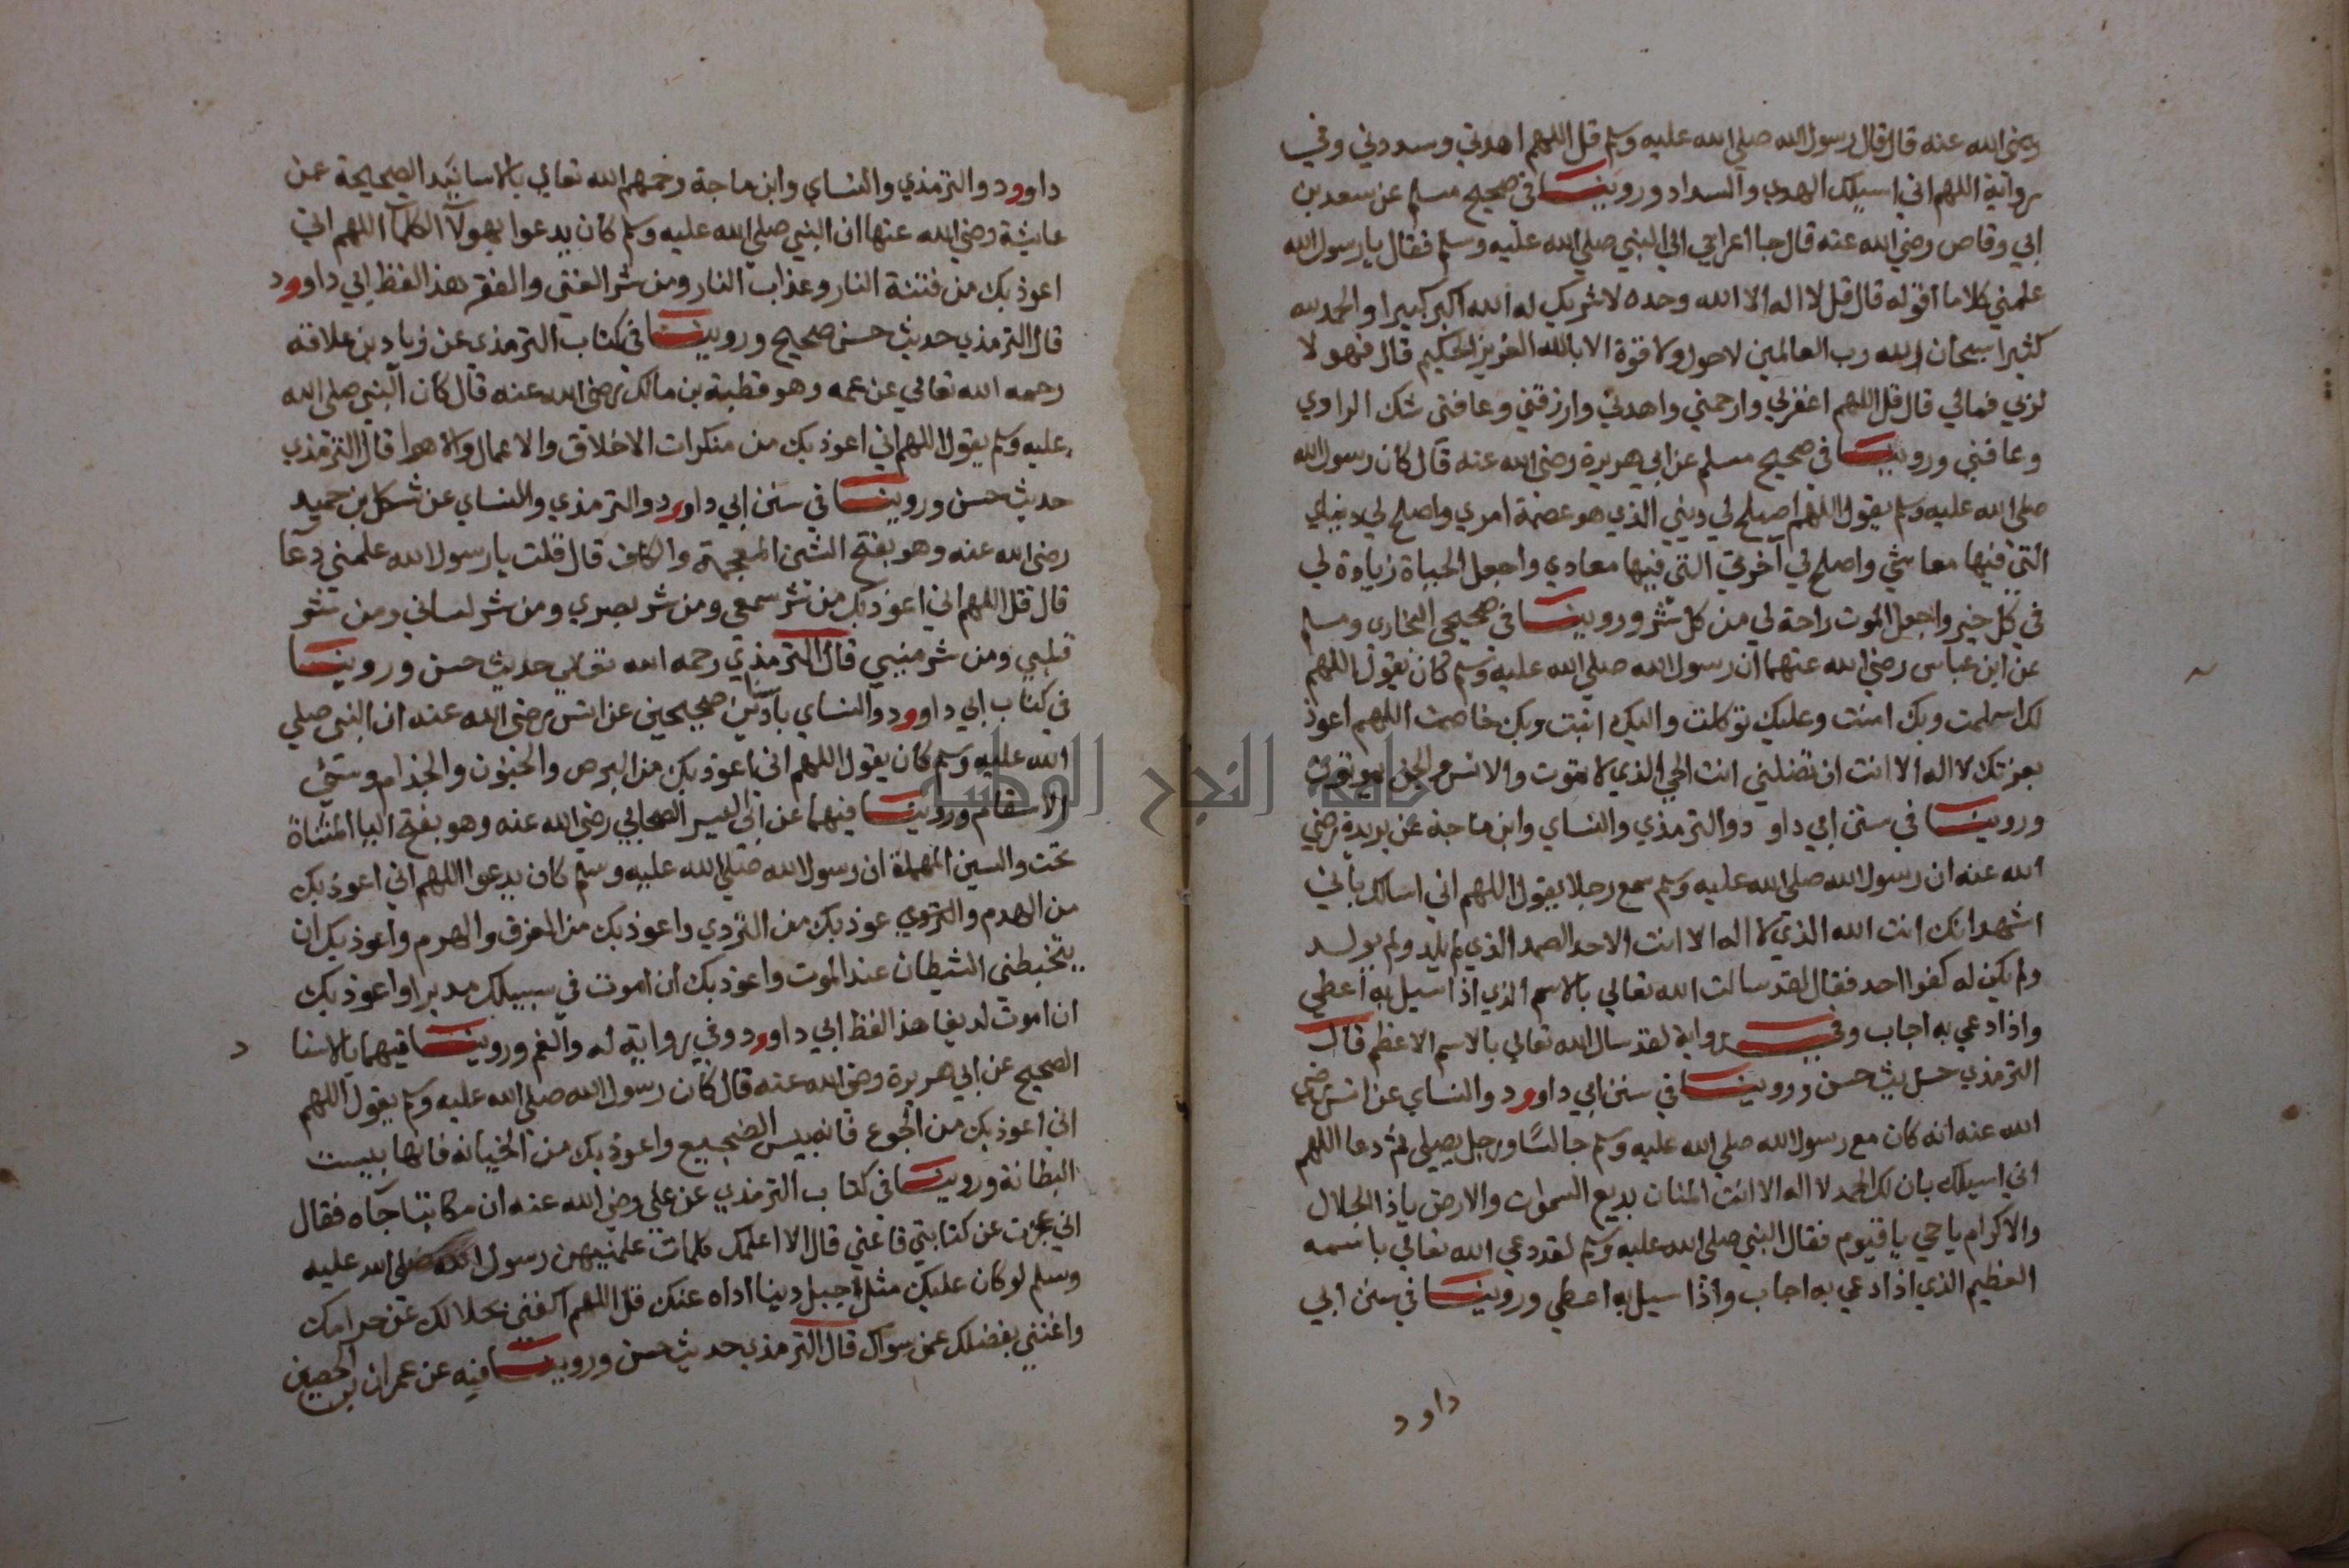 رضي الله عنه قال قال رسول الله صلي الله عليه وسلم قل اللهم اهدني وسددني وفي
رواية اللهم اني اسيلك الهدي والسداد وروينا في صحيح مسلم عن سعد بن
ابي وقاص رضي الله عنه قال جا اعرابي الي النبي صلي الله عليه وسلم فقال يا رسول الله
علمني كلاما اقوله قال قل لا اله الا الله وحده لا شريك له الله اكبر كبيرا والحمد لله
كثيرا سبحان الله رب العالمين لا حول ولا قوة الا بالله العزيز الحكيم قال فهولا
لربي فمالي قال قل اللهم اغفرلي وارحمني واهدني وارزقني وعافني شك الراوي
وعافني وروينا في صحيح مسلم عن ابي هريرة رضي الله عنه قال كان رسول الله
صلي الله عليه وسلم يقول اللهم اصلح لي ديني الذي هو عصمة امري واصلح لي دنياي
التي فيها معاشي واصلح لي آخرتي التي فيها معادي واجعل الحياة زيادة لي
في كل خير واجعل الموت راحة لي من كل شر وروينا في صحيحي البخاري ومسلم
عن ابن عباس رضي الله عنهما ان رسول الله صلي الله عليه وسلم كان يقول اللهم
لك اسلمت وبك امنت وعليك توكلت واليك انبت وبك خاصمت اللهم اعوذ
بعزتك لا اله الا انت ان تضلني انت الحي الذي لا تموت والانس والجن يموتون
وروينا في سنن ابي داود والترمذي والنساي وابن ماجة عن بريدة رضي
الله عنه ان رسول الله صلي الله عليه وسلم سمع رجلا يقول اللهم اني اسالك باني
اشهد انك انت الله الذي لا اله الا انت الاحد الصمد الذي لم يلد ولم يولد
ولم يكن له كفوا احد فقال لقد سالت الله تعالي بالاسم الذي اذا سيل به اعطي
واذا دعي به اجاب وفي رواية لقد سال الله تعالي بالاسم الاعظم قال
الترمذي حديث حسن وروينا في سنن ابي داوود والنساي عن انس رضي
الله عنه انه كان مع رسول الله صلي الله عليه وسلم جالسا ورجل يصلي ثم دعا اللهم
اني اسيلك بان لك الحمد لا اله الا انت المنان بديع السموات والارض يا ذا الجلال
والاكرام يا حي يا قيوم فقال النبي صلي الله عليه وسلم لقد دعي الله تعالي باسمه
العظيم الذي اذا دعي به اجاب واذا سيل به اعطي وروينا في سنن ابي
داود
داوود والترمذي والنساي وابن ماجة رحمهم الله تعالي بالاسانيد الصحيحة عن
عايشة رضي الله عنها ان النبي صلي الله عليه وسلم كان يدعوا بهولآ الكلمات اللهم اني
اعوذ بك من فتنة النار وعذاب النار ومن شر الغني والفقر هذا لفظ ابي داوود
قال الترمذي حديث حسن صحيح وروينا في كتاب الترمذي عن زياد بن علاقة
رحمه الله تعالي عن عمه وهو قطبة بن مالك رضي الله عنه قال كان النبي صلي الله
عليه وسلم يقول اللهم اني اعوذ بك من منكرات الاخلاق والاعمال والاهوا قال الترمذي
حديث حسن وروينا في سنن ابي داورد والترمذي والنساي عن شكل بن حميد
رضي الله عنه وهو بفتح الشين المعجمة والكاف قال قلت يا رسول الله علمني دعآ
قال قل اللهم اني اعوذ بك من شر سمعي ومن شر بصري ومن شر لساني ومن شر
قلبي ومن شر منيي قال الترمذي رحمه الله تعالي حديث حسن وروينا
في كتاب ابي داوود والنساي صحيحين عن انس رضي الله عنه ان النبي صلي
الله عليه وسلم كان يقول اللهم اني اعوذ بك من البرص والجنون والجذام وسيئ
الاسقام وروينا فيهما عن ابي اليسر الصحابي رضي الله عنه وهو بفتح اليا المثناة
تحت والسين المهملة ان رسول الله صلي الله عليه وسلم كان يدعوا اللهم اني اعوذ بك
من الهدم عوذ بك من التردي واعوذ بك من الغرق والهرم واعوذ بك ان
يتخبطني الشيطان عند الموت واعوذ بك ان اموت في سبيلك مدبرا واعوذ بك
ان اموت لديغا هذا لفظ ابي داورد وفي رواية له والغم وروينا فيهما بالاسنا
د
الصحيح عن ابي هريرة رضي الله عنه قال كان رسول الله صلي الله عليه وسلم يقول اللهم
اني اعوذ بك من الجوع فانه بيس الضجيع واعوذ بك من الخيانة فانها بيست
البطانة وروينا في كتاب الترمذي عن علي رضي الله عنه ان مكاتبا جآه فقال
اني عجزت عن كتابتي فاعني قال الا اعلمك كلمات علمنيهن رسول الله صلي الله عليه
وسلم لو كان عليك مثل جبل دينا اداه عنك قل اللهم اكفني بحلالك عن حرامك
واغنني بفضلك عن سواك قال الترمذي حديث حسن وروينا فيه عن عمران بن الحصين
جامعة النجاح الوطنية